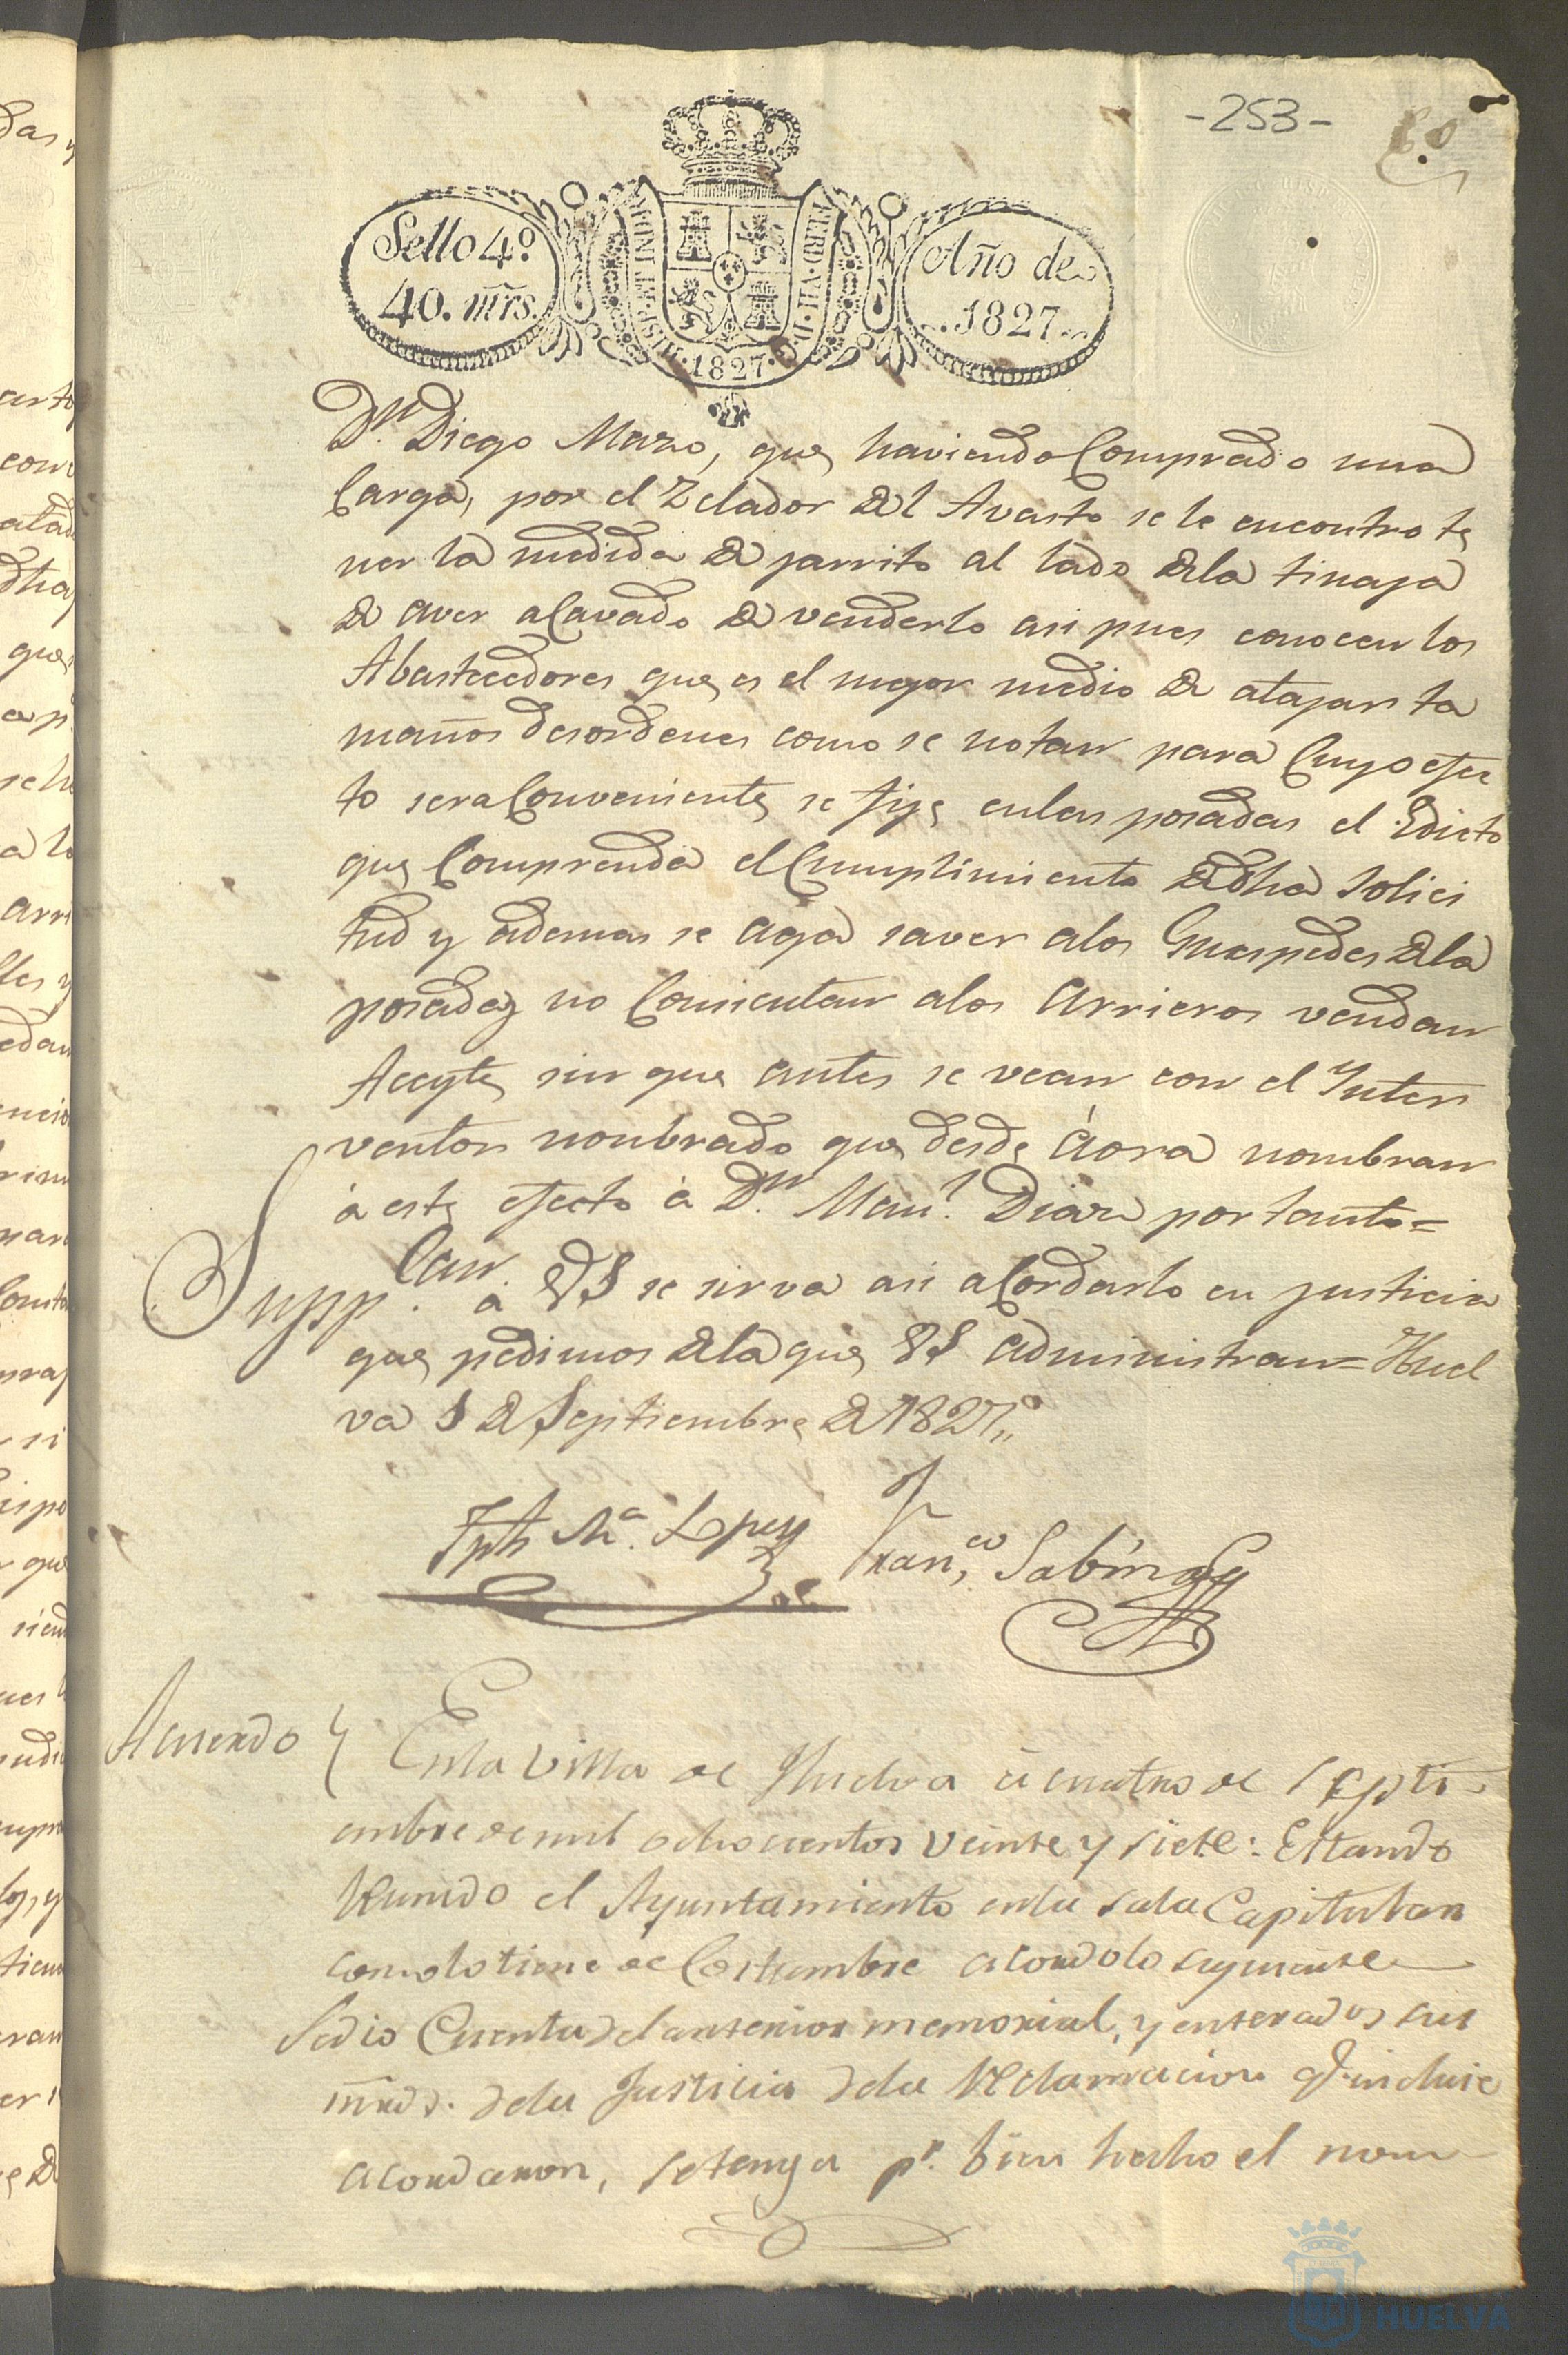 -253-
Sello 4º.
40. mrs.
HISP. ET IND. R.
FERD. VII. D. G.
1827
Año de
1827
Dn. Diego Mazo, que haviendo Comprado una
Carga, por el Zelador del Avasto se le encontro te
ner la medida de jarrito al lado dela tinaja
de aver acavado de venderlo asi pues conocen los
Abastecedores que es el mejor medio de atajar ta
maños desordenes como se notan para Cuyo efec
to sera Conveniente se fije en las posadas el Edicto
que Comprenda el Cumplimiento de dha solici
tud y ademas se aga saver a los Guespedes de la
posada no Consientan alos arrieros vendan
Aceyte sin que antes se vean con el Inter
ventor nombrado que desde áora nombran
á este efecto á Dn. Manl. Diaz por tanto=
Suppcan. a VS se sirva asi aCordarlo en justicia
que pedimos dela que VS administran= Huel
va de Septiembre de 1827,,
Jph Ma. Lopez Franco, Sabina
Acuerdo En la Villa de Huelva á cuatro de Septi-
embre de mil ochocientos veinte y siete: Estando
Reunido el Ayuntamiento en la sala Capitular
como lo tiene de Costumbre acordo lo siguiente
Se dio Cuenta del anterior memorial, y enterados sus
mrds. dela Justicia dela Reclamacion q. incluie
acordaron, se tenga pr. bien hecho el nom-
HUELVA